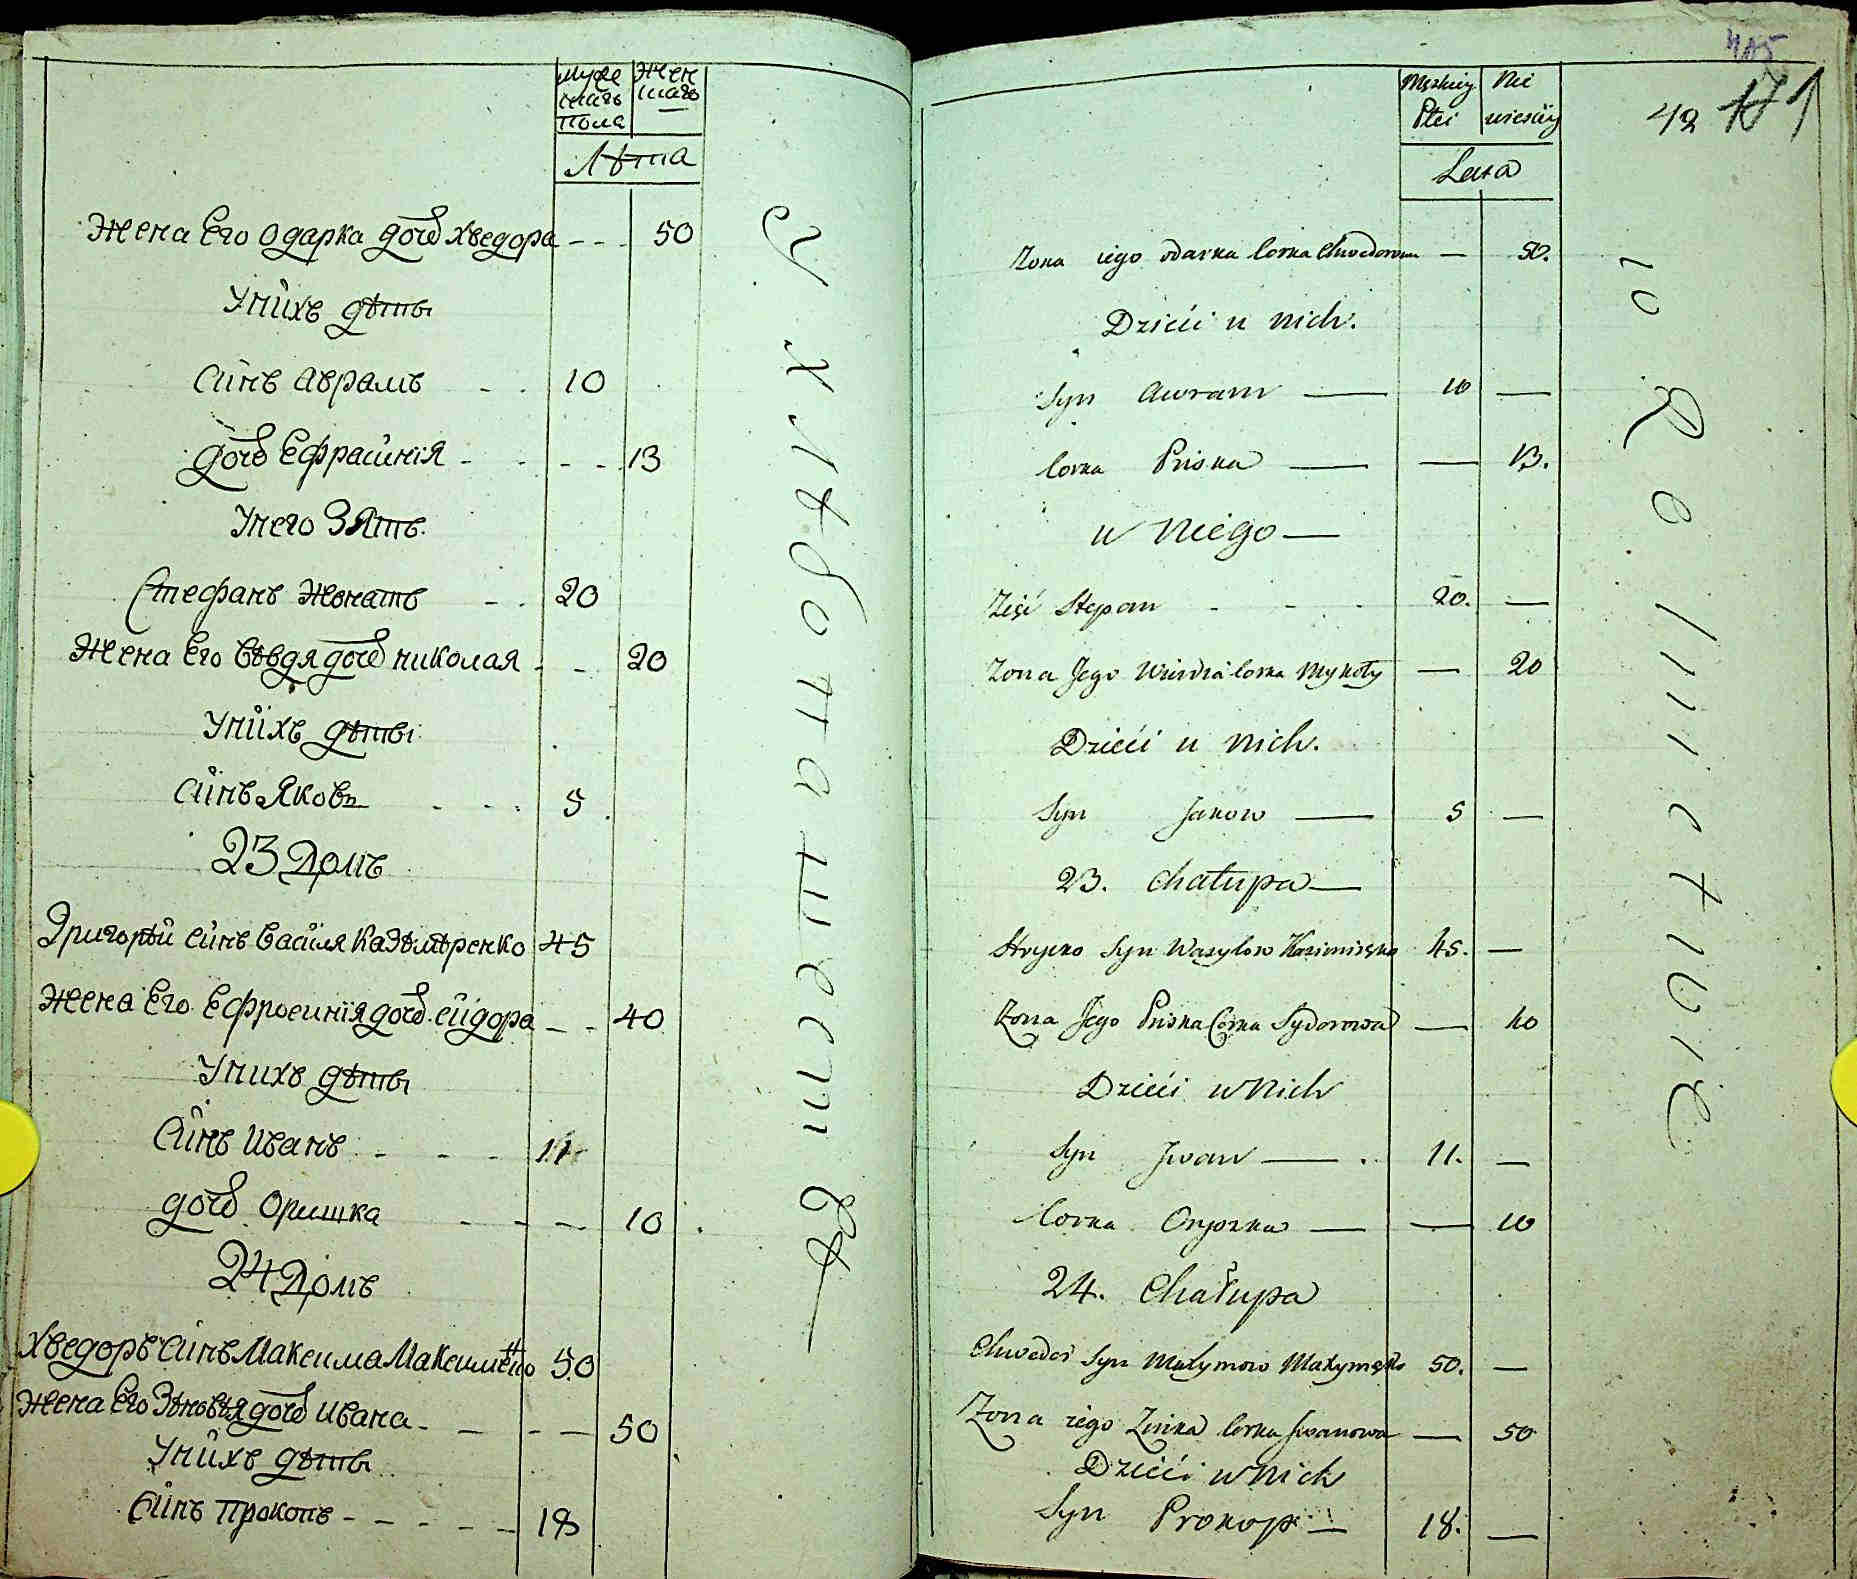 Мужескаго пола
Женскаго
Лѣта
Жена Его Одарка дочь Хведора - - - 50
У нихъ дѣтѣ
Синъ Аврамъ - - 10
дочь Ефрасинія - - - - 13
У него Зять
Стефанъ женатъ - - 20
Жена Его Евдя дочь николая - - 20
У нихъ дѣти
Синъ Яковъ - - - 5
23 Домъ
Григорій синъ Василя Казѣмѣренко 45
Жена Его Ефросинія дочь Сидора - - 40
У нихъ дѣти
Синъ Иванъ - - - 11
дочь Оришка - - - 10
24 Домъ
Хведоръ Синъ Максима Максименко 50
Жена Его Зѣновія дочь Ивана - - - - 50
У нихъ дѣти
Синъ Прокопъ - - - - - 18
Męzkiey Płci
Nie wiesciy
Lata
42
Zona iego Odarka Corka Chwedorowa — 50.
Dzieci u nich.
Syn Awram — 10 —
Corka Priska — — 13.
u Niego —
Zięć Stepan - - - 20. —
Zona Jego Wiewdia Corka Mykoły — 20
Dzieci u nich.
Syn Jakow — 5 —
23. Chałupa —
Hryćko Syn Wasylow Kazimiręko 45. —
Zona Jego Priska Corka Sydorowa — 40
Dzieci u Nich
Syn Jwan — 11. —
Corka Oryszka — — 10
24. Chałupa
Chwedor Syn Maxymow Maxymęko 50. —
Zona iego Zinka Corka Jwanowa — 50
Dzieci u Nich
Syn Prokop — 18. —